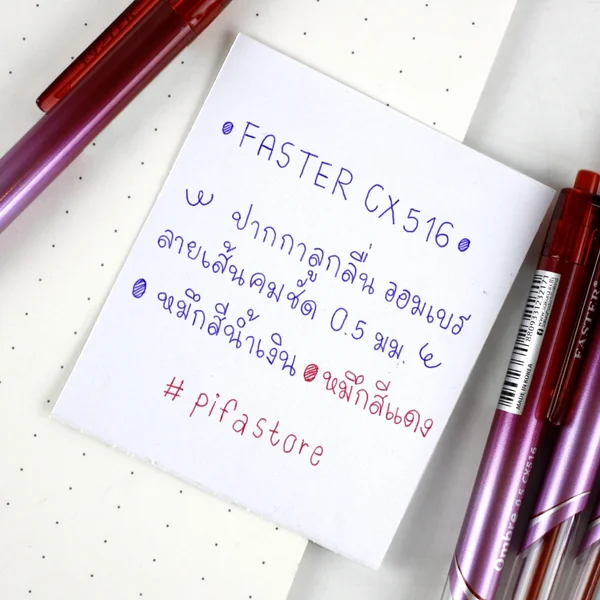 FASTER CX516
ปากกาลูกลื่น ออมเบร
ลายเส้นคมชัด 0.5 มม.
หมึกสีน้ำเงิน หมึกสีแดง
#pifastore
MADE IN KOREA
FASTER
Ombre 0.5 CX516